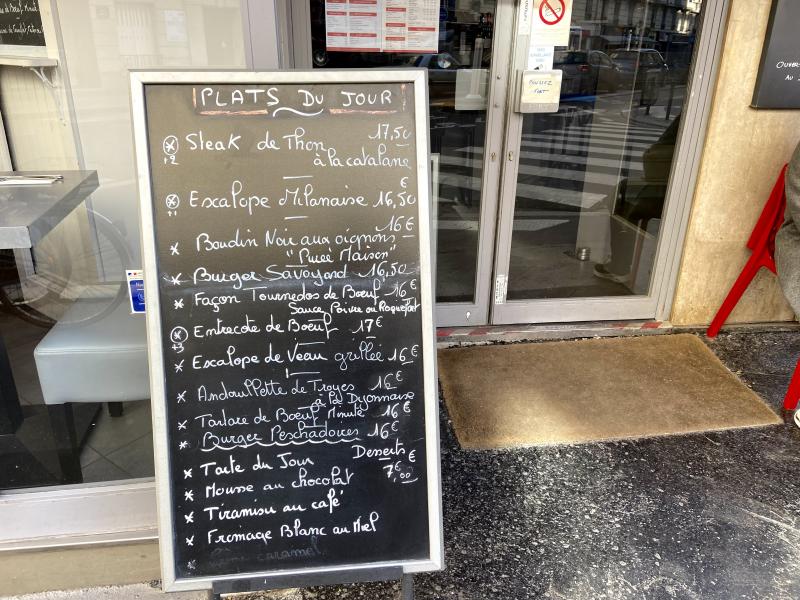 PLATS DU JOUR
17,50
+2 Steak de Thon
à la catalane
€
+1 Escalope Milanaise 16,50
16€
* Boudin Noir aux oignons
"Purée Maison"
* Burger Savoyard 16,50
* Façon Tournedos de Bœuf 16€
Sauce Poivre ou Roquefort
+3 Entrecote de Bœuf 17€
* Escalope de Veau grillée 16€
* Andouillette de Troyes 16€
à la Dijonnaise
* Tartare de Bœuf Minute 16€
* Burger Peschadoires 16€
Desserts €
* Tarte du Jour 7€,00
* Mousse au chocolat
* Tiramisu au café
* Fromage Blanc au Miel
* caramel
POUSSEZ
FORT